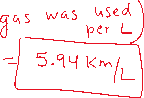 gas was used
per L
= 5.94 km/L